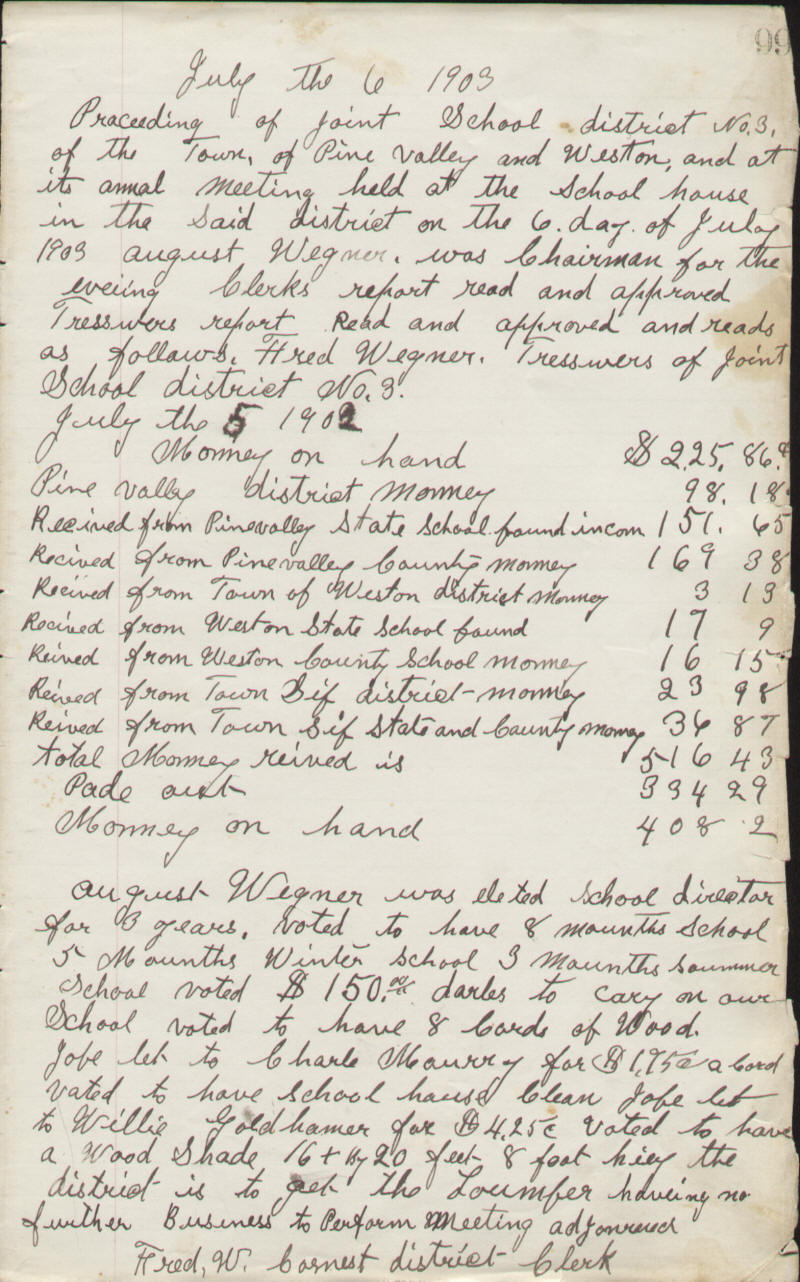 99
July the 6 1903
Proceeding of joint School district No.3.
of the Town, of Pine Valley and Weston, and at
its annal meeting held at the School house
in the said district on the 6. day. of July
1903 august Wegner. was Chairman for the
eveiing Clerks report read and approved
Tressuers report Read and approved and reads
as follows. Fred Wegner. Tressuers of Joint
School district No.3.
July the 5 1902
Monney on hand $ 225. 86.
Pine valley district Monney 98. 18
Recived from Pinevalley State School found incom 151. 65
Recived from Pinevalley County monney 169 38
Recived from Town of Weston district Monney 3 13
Recived from Weston State School found 17 9
Reived from Weston County School monney 16 15
Reived from Town Sif district monney 23 98
Reived from Town Sif State and County money 36 87
total Monney reived is 516 43
Pade out 334 29
Monney on hand 408 2
august Wegner was eleted School director
for 3 years. voted to have 8 mounths School
5 Mounths Winter School 3 Mounths Soummer
School voted $ 150.00 darles to cary on our
School voted to have 8 Cords of Wood.
Jobe let to Charle Mourry for $ 1,75c a Cord
voted to have School house Clean Jobe let
to Willie Goldhamer for $ 4,25c voted to have
a Wood Shade 16 + by 20 feet 8 foot hiey the
district is to get the Loumber haveing no
further Business to Perform Meeting adjonrued
Fred, W. Cornest district Clerk